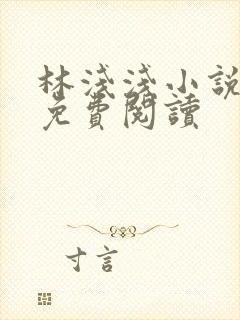 林淺淺小說
免費閱讀
寸言